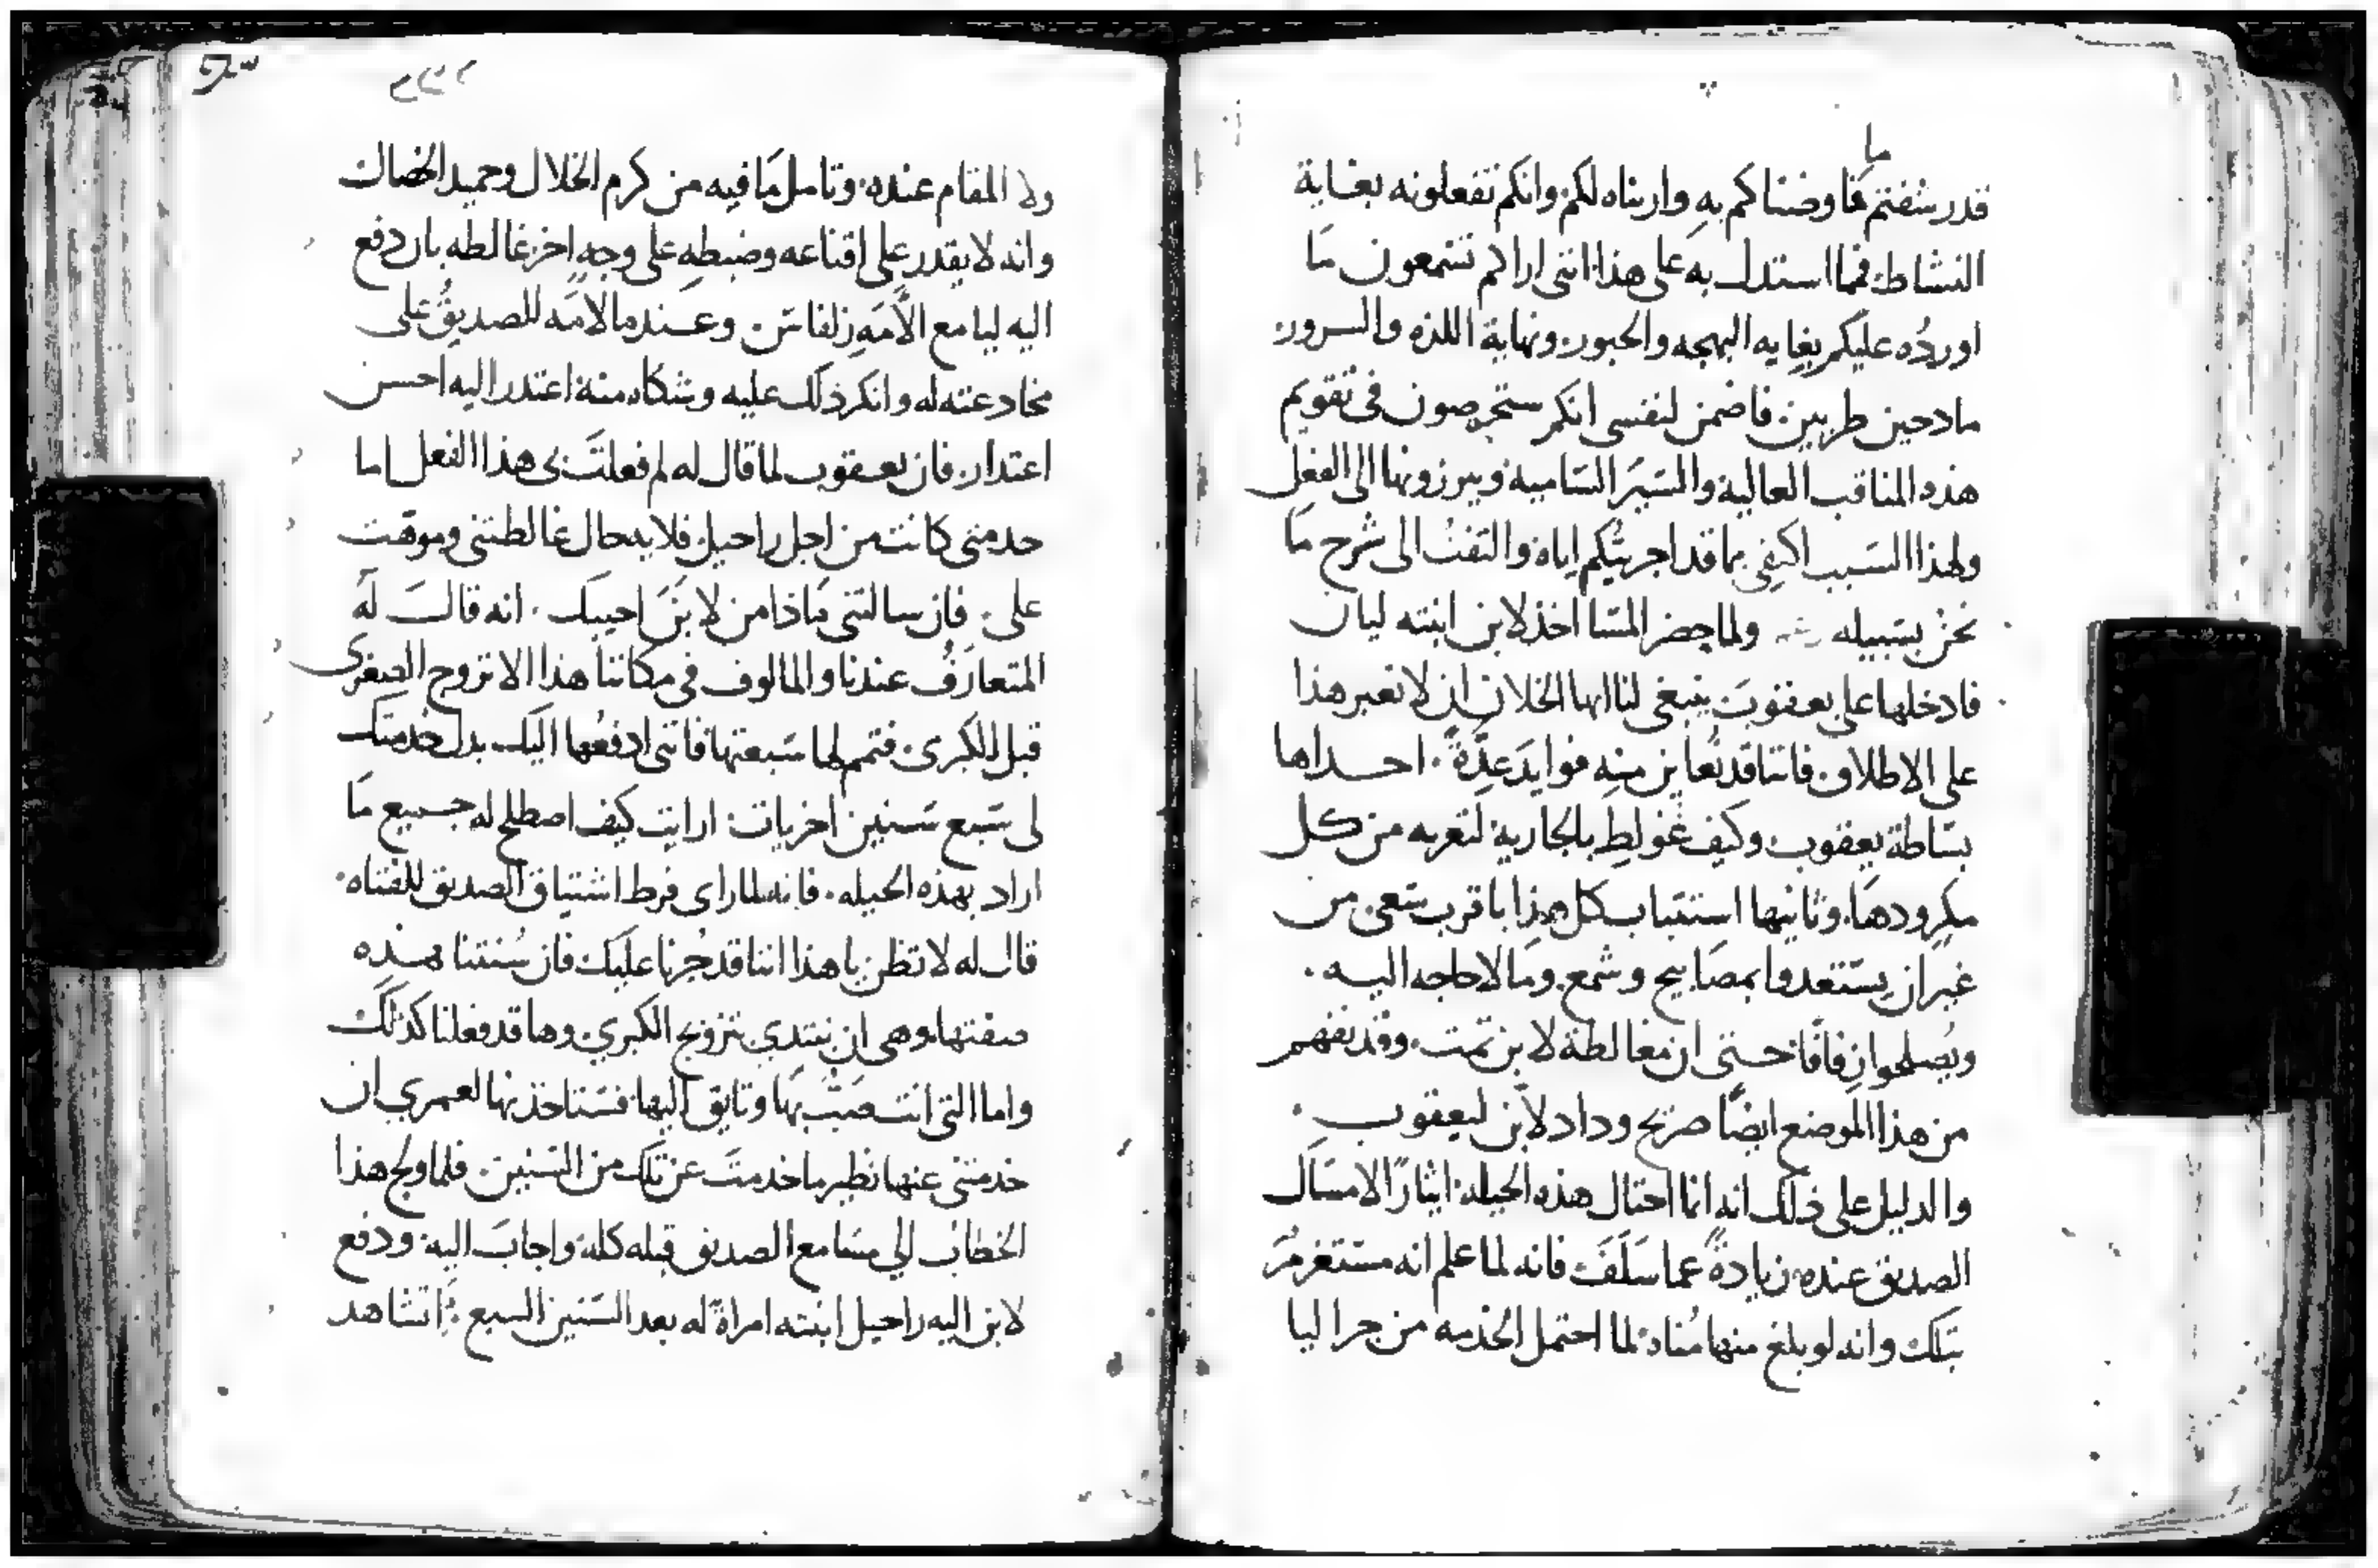 ما
قدر شفتم فاوضناكم به وارىناه لكم وانكم تفعلونه بغاية
النشاط فمما استدل به على هذا انني اراكم تسمعون ما
اورده عليكم بغايه البهجه والحبور ونهاية اللذه والسرور
مادحين طربين فاضمن لنفسى انكم ستحرصون فى تقويم
هذه المناقب العالية والسير السامية وتبرزونها الى الفعل
ولهذا السبب اكتفي بما قد اجريتكم اياه والتفت الى شرح ما
نحن بسبيله ولما حضر المسا اخذ لابن ابنته ليان
فادخلها على يعقوب ينبغي لنا ايها الخلان ان لا نعبر هذا
على الاطلاق فاننا قد نعاين منه فوايد عدة احداها
بساطة يعقوب وكيف غولط بالجارية لتعريه من كل
مكر ودها وثانيها استتباب كل هذا باقرب سعى من
غير ان يستعدوا بمصابيح وشمع وما لا حاجه اليه
ويصلحوا زفافا حتى ان مغالطة لابن تمت وقد نفهم
من هذا الموضع ايضا صريح وداد لابن ليعقوب
والدليل على ذلك انه انما احتال هذه الحيلة ايثارا لامساك
الصديق عنده زيادة عما سلف فانه لما علم انه مستغرم
بتلك وانه لو بلغ منها مناه لما احتمل الخدمه من جرا ليا
ولا المقام عنده وتامل ما فيه من كرم الخلال وحميد الخصال
وانه لا يقدر على اقناعه وضبطه على وجه اخر غالطه بان دفع
اليه ليا مع الامه زلفا وعندما لامه للصديق على
مخادعته له وانكر ذلك عليه وشكاه منه اعتدر اليه احسن
اعتدار فان يعقوب لما قال له لم فعلت بى هذا الفعل اما
خدمتى كانت من اجل راحيل فلاية حال غالطتنى وموهت
على فان سالتنى ماذا من لابن احيبك انه قال له
المتعارف عندنا والمالوف في مكاننا هذا الا نزوج الصغرى
قبل الكبرى فتمم لها سبعتها فانني ادفعها اليك بدل خدمتك
لى سبع سنين اخريات ارايت كيف اصطلح له جميع ما
اراد بهذه الحيله فانه لما راى فرط اشتياق الصديق للفتاه
قال له لا تظن يا هذا اننا قد جرنا عليك فان سنتنا هذه
صفتها وهى ان نبتدي بتزويج الكبري وها قد فعلنا كذلك
واما التى انت صب بها وتايق اليها فستاخذنها لعمري ان
خدمتنى عنها نظير ما خدمت عن تلك من السنين فلما ولج هذا
الخطاب الي مسامع الصديق قبله كله واجاب اليه ودفع
لابن اليه راحيل ابنته امراة له بعد السنين السبع اتشاهد